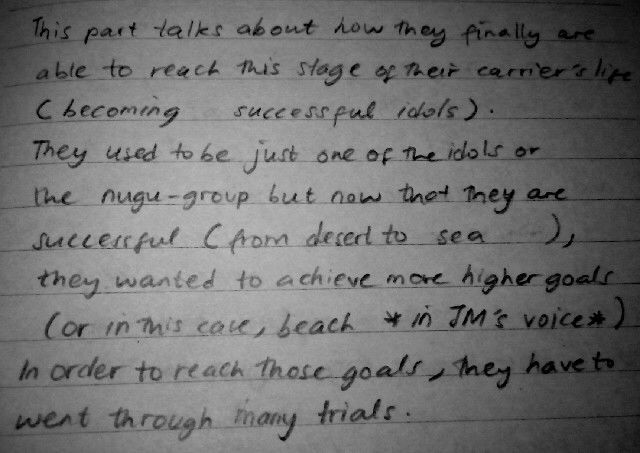 This part talks about how they finally are
able to reach this stage of their carrier's life
(becoming successful idols).
They used to be just one of the idols or
the nugu-group but now that they are
successful (from desert to sea ),
they wanted to achieve more higher goals
(or in this case, beach *in JM's voice*)
In order to reach those goals, they have to
went through many trials.